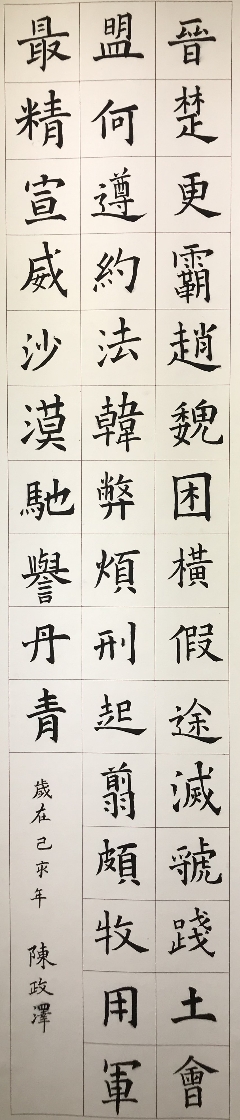 晉楚更霸趙魏困橫假途滅虢踐土會
盟何遵約法韓弊煩刑起翦頗牧用軍
最精宣威沙漠馳譽丹青
歲在己亥年 陳政澤